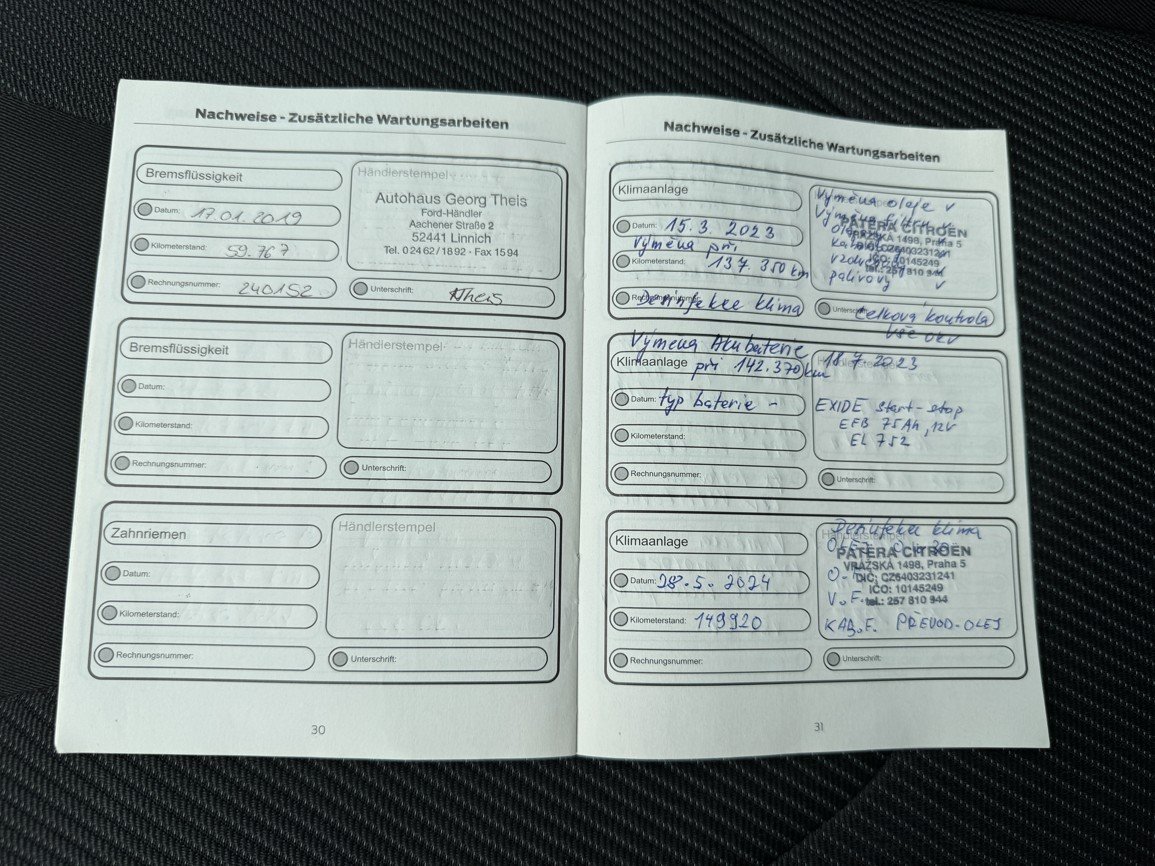 Nachweise - Zusätzliche Wartungsarbeiten
Bremsflüssigkeit
Datum: 17.01.2019
Kilometerstand: 59.767
Rechnungsnummer: 240152
Händlerstempel
Autohaus Georg Theis
Ford-Händler
Aachener Straße 2
52441 Linnich
Tel. 0 24 62 / 18 92 · Fax 15 94
Unterschrift: Theis
Bremsflüssigkeit
Datum:
Kilometerstand:
Rechnungsnummer:
Händlerstempel
Unterschrift:
Zahnriemen
Datum:
Kilometerstand:
Rechnungsnummer:
Händlerstempel
Unterschrift:
30
Nachweise - Zusätzliche Wartungsarbeiten
Klimaanlage
Datum: 15.3.2023
Výměna při
Kilometerstand: 137.350 km
Desinfekce klima
Výměna oleje v
Výměna filtru v
PATERA CITROËN
VRÁŽSKÁ 1498, Praha 5
DIČ: CZ6403231241
IČO: 10145249
tel.: 257 810 944
palivový v
Unterschrift: Celková kontrola
vše ok v
Výměna Akubaterie
Klimaanlage při 142.370 km
Datum: typ baterie -
Kilometerstand:
Rechnungsnummer:
18.7.2023
EXIDE start-stop
EFB 75Ah, 12V
EL 752
Unterschrift:
Klimaanlage
Datum: 28.5.2024
Kilometerstand: 149920
Rechnungsnummer:
Desinfekce klima
PATERA CITROËN
VRÁŽSKÁ 1498, Praha 5
DIČ: CZ6403231241
IČO: 10145249
V.F. tel.: 257 810 944
KAB.F. PŘEVOD-OLEJ
Unterschrift:
31